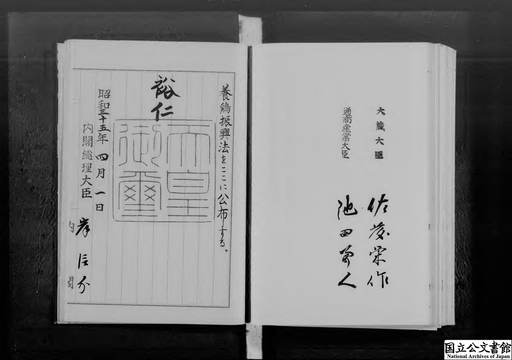 養鶏振興法をここに公布する。
裕仁
天皇御璽
昭和三十五年四月一日
内閣総理大臣
岸信介
大蔵大臣
佐藤栄作
通商産業大臣
池田勇人
国立公文書館
National Archives of Japan